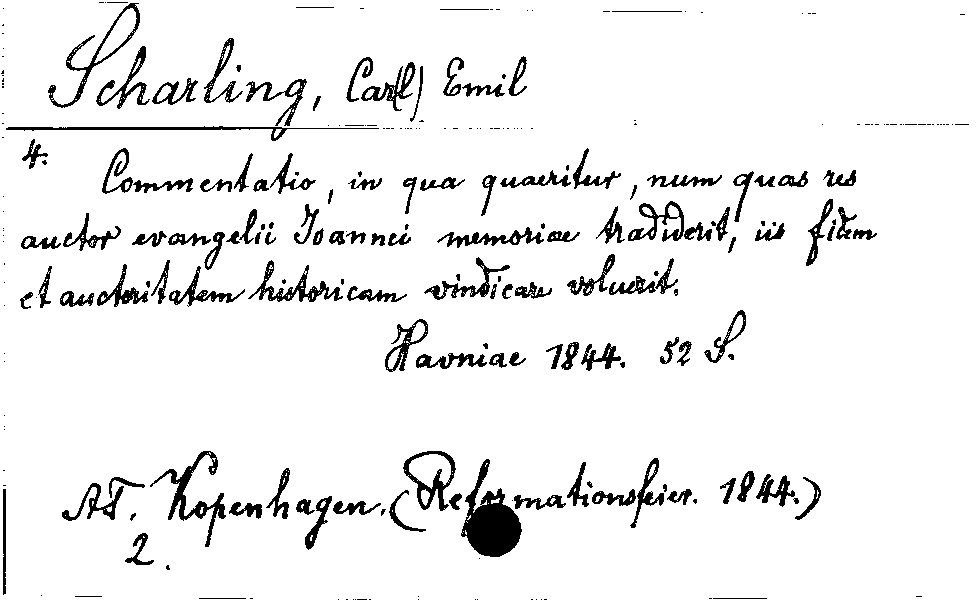 Scharling, Car(l) Emil
4.
Commentatio, in qua quaeritur, num quas res
auctor evangelii Joannei memoriae tradiderit, iis fidem
et auctoritatem historicam vindicare voluerit.
Havniae 1844. 52 S.
AT. Kopenhagen. (Reformationsfeier. 1844.)
2.